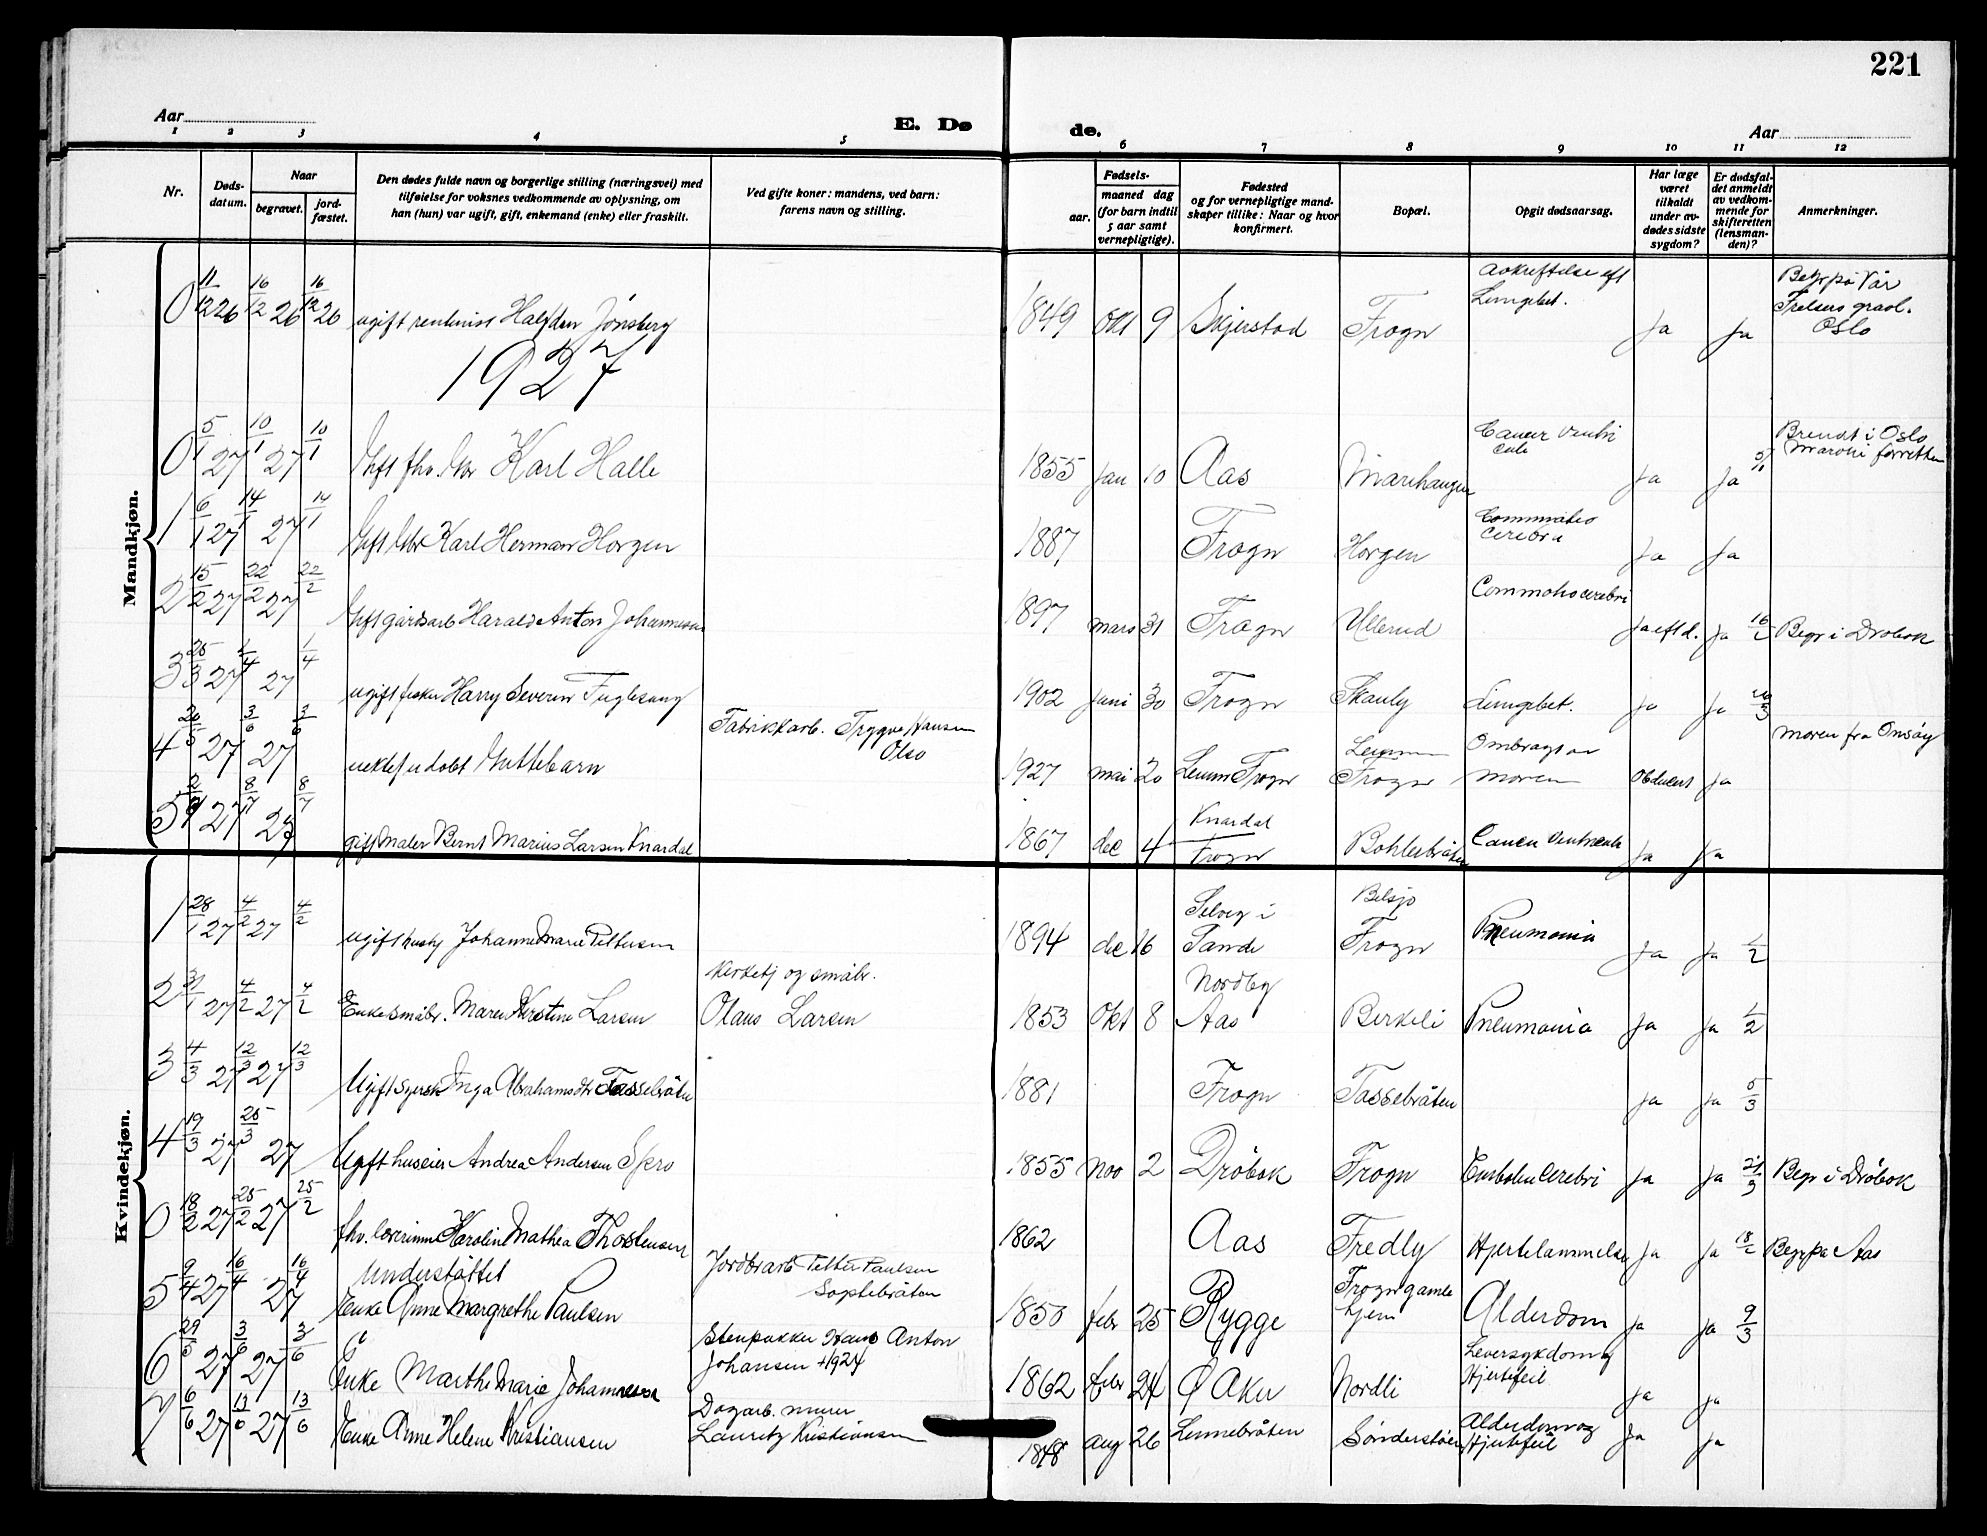 221
Aar
E. Dø
de.
Aar
1 2 3 4 5 6 7 8 9 10 11 12
Nr.
Døds-
datum.
Naar
begravet.
jord-
fæstet.
Den dødes fulde navn og borgerlige stilling (næringsvei) med
tilføielse for voksnes vedkommende av oplysning, om
han (hun) var ugift, gift, enkemand (enke) eller fraskilt.
Ved gifte koner: mandens, ved barn:
farens navn og stilling.
Fødsels-
aar.
maaned dag
(for barn indtil
5 aar samt
vernepligtige).
Fødested
og for vernepligtige mand-
skaper tillike: Naar og hvor
konfirmert.
Bopæl.
Opgit dødsaarsag.
Har læge
været
tilkaldt
under av-
dødes sidste
sygdom?
Er dødsfal-
det anmeldt
av vedkom-
mende for
skifteretten
(lensman-
den)?
Anmerkninger.
Mandkjøn.
0 11/12 26 16/12 26 16/12 26 ugift rentenist Halfdan Jønsberg 1849 okt 9 Skjerstad Frogn Avkreftelse eft Lungebet. Ja Ja Begr på Vår Frelsers gravl. Oslo
1927
0 5/1 27 10/1 27 10/1 Gift fhv. Karl Halle 1855 Jan 10 Aas Marihaugen Cancer Ventri culi Ja Ja 5/1 Brendt i Oslo
1 6/1 27 14/1 27 14/1 Gift Gbr Karl Herman Horgen 1887 Frogn Horgen Commotio Cerebri Ja Ja
2 15/2 27 22/2 27 22/2 Gift gårdsarb Harald Anton Johannesen 1897 mars 31 Frogn Ullerud Commotio cerebri Ja eft d. Ja 16/2 Begr i Drøbak
3 25/3 27 1/4 27 1/4 ugift fisker Harry Severin Fuglesang 1902 Juni 30 Frogn Skauly Lungebet. Ja Ja
4 20/5 27 3/6 27 3/6 uekte udøbt Guttebarn Fabrikkarb. Trygve Hansen Oslo 1927 mai 20 Frogn Frogn Ombragt av moren Obducert Ja moren fra Onsøy
5 2/7 27 8/7 27 8/7 gift maler Bernt Marius Larsen Knardal 1867 dec 4 Knardal Frogn Bohlerbråten Cancer Ventriculi Ja Ja
Kvindekjøn.
1 28/1 27 4/2 27 4/2 ugift Johanne Marie Pettersen 1894 dec 16 Selvig i Sande Belsjø Frogn Pneumonia Ja Ja 1/2
2 31/1 27 4/2 27 4/2 Enke småbr. Maren Kirstine Larsen Kirketj og småbr. Olaus Larsen 1853 Okt 8 Nordby Aas Birkeli Pneumonia Ja Ja 1/2
3 4/3 27 12/3 27 12/3 Ugift Inga Abrahamsdtr Tassebråten 1881 Frogn Tassebråten Ja Ja 5/3
4 19/3 27 25/3 27 Ugift huseier Andrea Andersen Skjero 1855 Nov 2 Drøbak Frogn Embolia Cerebri Ja Ja 21/3 Begr i Drøbak
0 18/2 27 25/2 27 25/2 fhv. lærerinne Karoline Mathea Thorstensen 1862 Aas Fredly Hjertelammelse Ja Ja 18/2 Begr på Aas
5 9/4 27 16/4 27 16/4 Understøttet Enke Anne Margrethe Paulsen Jordbrarb Petter Paulsen Soplebråten 1850 febr 25 Rygge Frogn gamle hjem Alderdom Ja Ja 9/3
6 29/5 27 3/6 27 3/6 Enke Marthe Marie Johannesen Stenpukker Hans Anton Johansen +1924 1862 febr 24 Ø Aker Nordli Leversykdom og Hjertefeil Ja Ja
7 6/6 27 13/6 27 13/6 Enke Anne Helene Kristiansen Dagarb. murer Lauritz Kristiansen 1848 aug 26 Lennebråten Sønderstøen Alderdom og Hjertefeil Ja Ja